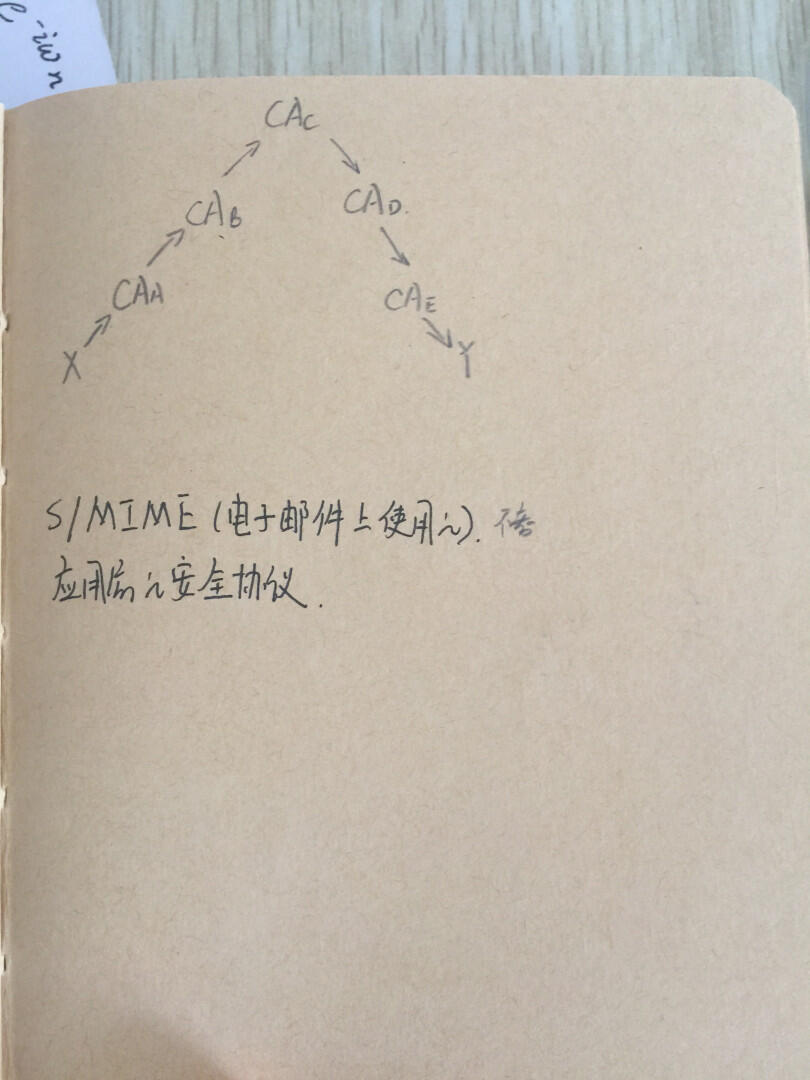 e^-iωn
CAc
CAB
CAD.
CAA
CAE
X
Y
S/MIME (电子邮件上使用的).
应用层的安全协议.